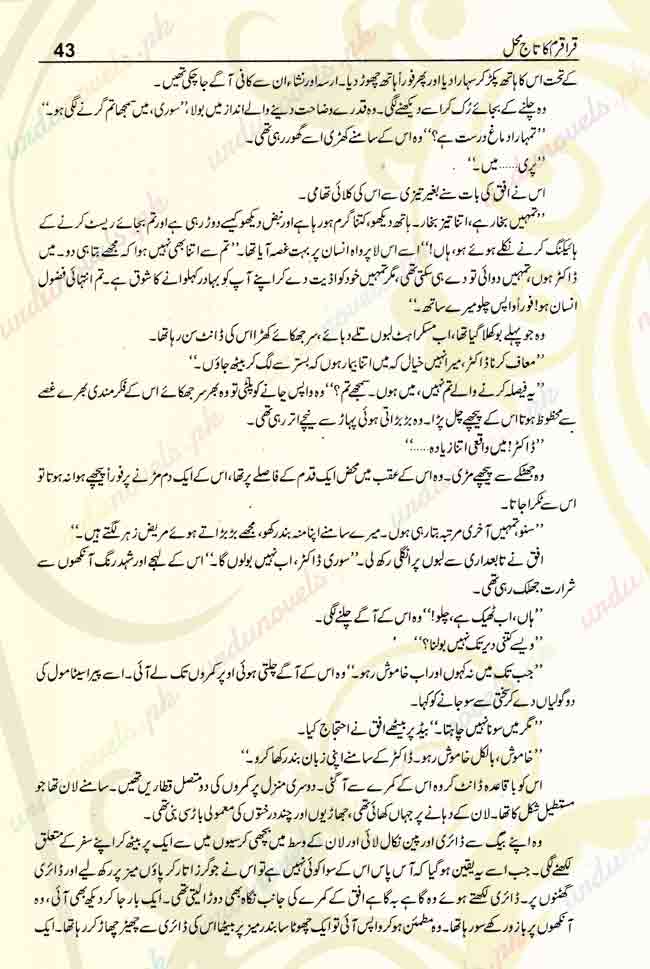 قراقرم کا تاج محل
43
کے تحت اس کا ہاتھ پکڑ کر سہارا دیا اور پھر فوراً ہاتھ چھوڑ دیا۔ ارسہ اور نشاء ان سے کافی آگے جا چکی تھیں۔
وہ چلنے کے بجائے رُک کر اسے دیکھنے لگی۔ وہ قدرے وضاحت دینے والے انداز میں بولا، ”سوری، میں سمجھا تم گرنے لگی ہو۔“
”تمہارا دماغ درست ہے؟“ وہ اس کے سامنے کھڑی اسے گھور رہی تھی۔
”پری...... میں۔“
اس نے افق کی بات سنے بغیر تیزی سے اس کی کلائی تھامی۔
”تمہیں بخار ہے، اتنا تیز بخار۔ ہاتھ دیکھو، کتنا گرم ہو رہا ہے اور نبض دیکھو کیسے دوڑ رہی ہے اور تم بجائے ریسٹ کرنے کے
ہائیکنگ کرنے نکلے ہوئے ہو، ہاں!“ اسے اس لا پرواہ انسان پر بہت غصہ آیا تھا۔ ”تم سے اتنا بھی نہیں ہوا کہ مجھے بتا ہی دو۔ میں
ڈاکٹر ہوں، تمہیں دوائی تو دے ہی سکتی تھی، مگر تمہیں خود کو اذیت دے کر اپنے آپ کو بہادر کہلوانے کا شوق ہے۔ تم انتہائی فضول
انسان ہو! فوراً واپس چلو میرے ساتھ۔“
وہ جو پہلے بوکھلا گیا تھا، اب مسکراہٹ لبوں تلے دبائے، سر جھکائے کھڑا اس کی ڈانٹ سن رہا تھا۔
”معاف کرنا ڈاکٹر، میرا نہیں خیال کہ میں اتنا بیمار ہوں کہ بستر سے لگ کر بیٹھ جاؤں۔“
”یہ فیصلہ کرنے والے تم نہیں، میں ہوں۔ سمجھے تم؟“ وہ واپس جانے کو پلٹی تو وہ پھر سر جھکائے اس کے فکر مندی بھرے غصے
سے محظوظ ہوتا اس کے پیچھے چل پڑا۔ وہ بڑبڑاتی ہوئی پہاڑ سے نیچے اتر رہی تھی۔
”ڈاکٹر! میں واقعی اتنا زیادہ......“
وہ جھٹکے سے پیچھے مڑی۔ وہ اس کے عقب میں محض ایک قدم کے فاصلے پر تھا، اس کے ایک دم مڑنے پر فوراً پیچھے ہوا نہ ہوتا تو
اس سے ٹکرا جاتا۔
”سنو، تمہیں آخری مرتبہ بتا رہی ہوں۔ میرے سامنے اپنا منہ بند رکھو، مجھے بڑبڑاتے ہوئے مریض زہر لگتے ہیں۔“
افق نے تابعداری سے لبوں پر انگلی رکھ لی۔ ”سوری ڈاکٹر، اب نہیں بولوں گا۔“ اس کے لہجے اور شہد رنگ آنکھوں سے
شرارت جھلک رہی تھی۔
”ہاں، اب ٹھیک ہے، چلو!“ وہ اس کے آگے چلنے لگی۔
”ویسے کتنی دیر تک نہیں بولنا؟“
”جب تک میں نہ کہوں اور اب خاموش رہو۔“ وہ اس کے آگے چلتی ہوئی اوپر کمروں تک لے آئی۔ اسے پیراسیٹا مول کی
دو گولیاں دے کر سختی سے سو جانے کو کہا۔
”مگر میں سونا نہیں چاہتا۔“ بیڈ پر بیٹھے افق نے احتجاج کیا۔
”خاموش، بالکل خاموش رہو۔ ڈاکٹر کے سامنے اپنی زبان بند رکھا کرو۔“
اس کو باقاعدہ ڈانٹ کر وہ اس کے کمرے سے آ گئی۔ دوسری منزل پر کمروں کی دو متصل قطاریں تھیں۔ سامنے لان تھا جو
مستطیل شکل کا تھا۔ لان کے دہانے پر جہاں کھائی تھی، جھاڑیوں اور چند درختوں کی معمولی باڑ سی بنی تھی۔
وہ اپنے بیگ سے ڈائری اور پین نکال لائی اور لان کے وسط میں بچھی کرسیوں میں سے ایک پر بیٹھ کر اپنے سفر کے متعلق
لکھنے لگی۔ جب اسے یہ یقین ہو گیا کہ آس پاس اس کے سوا کوئی نہیں ہے تو اس نے جوگرز اتار کر پاؤں میز پر رکھ لیے اور ڈائری
گھٹنوں پر۔ ڈائری لکھتے ہوئے وہ گاہے بہ گاہے افق کے کمرے کی جانب نگاہ بھی دوڑا لیتی تھی۔ ایک بار جا کر دیکھ بھی آئی، وہ
آنکھوں پر بازو رکھے سو رہا تھا۔ وہ مطمئن ہو کر واپس آئی تو ایک چھوٹا سا بندر میز پر بیٹھا اس کی ڈائری سے چھیڑ چھاڑ کر رہا تھا۔ ایک